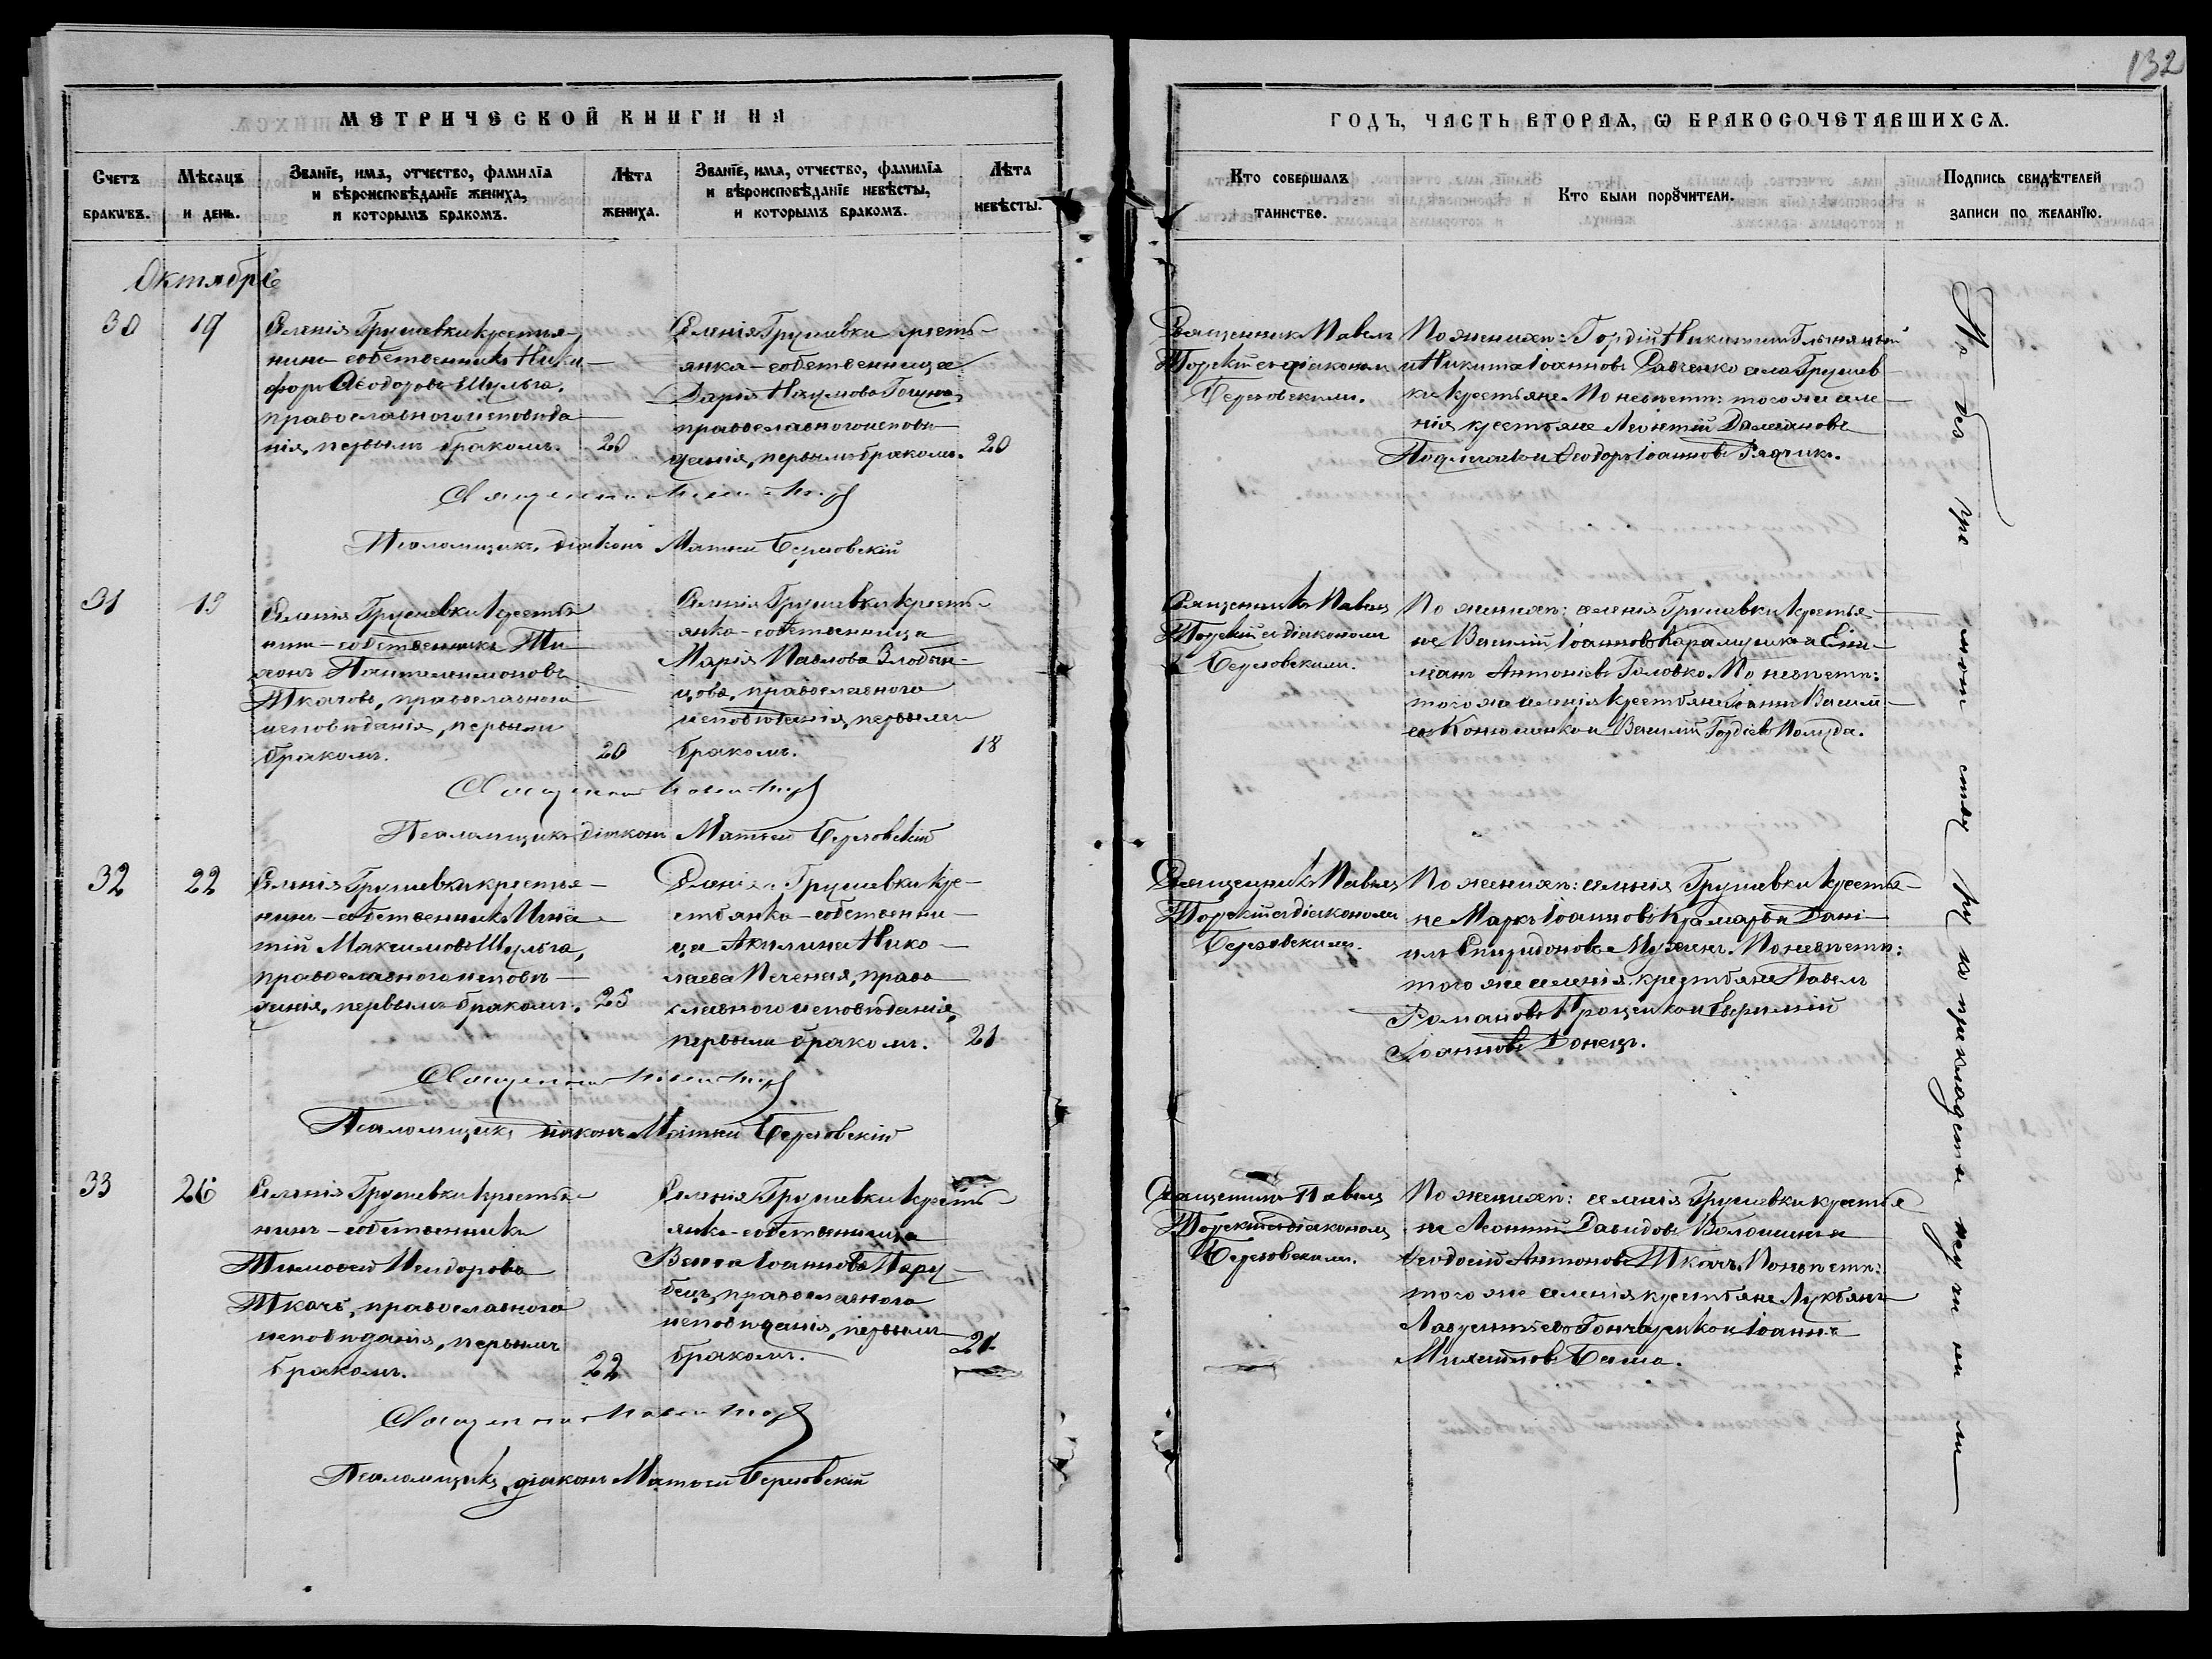 132
МЕТРИЧЕСКОЙ КНИГИ НА
ГОДЪ, ЧАСТЬ ВТОРАѦ, Ѡ БРАКОСОЧЕТАВШИХСѦ.
Счетъ браковъ.
Мѣсѧцъ и день.
Званїе, имѧ, отчество, фамилїа
и вѣроисповѣданїе жениха,
и которымъ бракомъ.
Лѣта
жениха.
Званїе, имѧ, отчество, фамилїа
и вѣроисповѣданїе невѣсты,
и которымъ бракомъ.
Лѣта
невѣсты.
Кто совершалъ
таинство.
Кто были порꙋчители.
Подпись свидѣтелей
записи по желанїю.
Октябрь
30
19
Селенія Грушевки крестья-
нинъ-собственникъ Ники-
форъ Ѳеодоровъ Шульга,
православного исповѣда
нія, первымъ бракомъ.
20
Селенія Грушевки кресть-
янка-собственница
Дарія Наумова
православного исповѣ
данія, первымъ бракомъ.
20
Священникъ Павелъ
Торскій съ діакономъ
Березовскимъ.
По женихѣ: Гордій Никитинъ
и Никита Іоанновъ Савченко села Грушев-
ки крестьяне. По невѣстѣ: того же селе-
нія крестьяне Леонтій Даміановъ
и Ѳеодоръ Іоанновъ
Священникъ Павелъ Торскій
Псаломщикъ діаконъ Матѳей Березовскій
31
19
Селенія Грушевки крестья
нинъ-собственникъ Ти-
хонъ Пантелеимоновъ
Ткачовъ, православного
исповѣданія, первымъ
бракомъ.
20
Селенія Грушевки кресть-
янка-собственница
Марія Павлова Злобин-
цова, православного
исповѣданія, первымъ
бракомъ.
18
Священникъ Павелъ
Торскій съ діакономъ
Березовскимъ.
По женихѣ: селенія Грушевки крестья-
не Василій Іоанновъ Карамушка и Еми-
ліанъ Антоніевъ Головко. По невѣстѣ:
того же селенія крестьяне Іоаннъ Василі-
евъ и Василій Гордіевъ
Священникъ Павелъ Торскій
Псаломщикъ діаконъ Матѳей Березовскій
32
22
Селенія Грушевки крестья-
нинъ-собственникъ Игна-
тій Максимовъ Шульга,
православного исповѣ-
данія, первымъ бракомъ.
25
Селенія Грушевки кре-
стьянка-собственни-
ца Акилина Нико-
лаева Печеная, право
славного исповѣданія,
первымъ бракомъ.
21
Священникъ Павелъ
Торскій съ діакономъ
Березовскимъ.
По женихѣ: селенія Грушевки крестья-
не Маркъ Іоанновъ Крамарь и Дані-
илъ Спиридоновъ. По невѣстѣ:
того же селенія крестьяне Павелъ
Романовъ Проценко и
Іоанновъ Донецъ.
Священникъ Павелъ Торскій
Псаломщикъ діаконъ Матѳей Березовскій
33
26
Селенія Грушевки крестья-
нинъ-собственникъ
Тимоѳей
Ткачъ, православного
исповѣданія, первымъ
бракомъ.
22
Селенія Грушевки кресть-
янка-собственница
Васса Іоаннова Пару-
бецъ, православного
исповѣданія, первымъ
бракомъ.
21
Священникъ Павелъ
Торскій съ діакономъ
Березовскимъ.
По женихѣ: селенія Грушевки крестья
не Леонтій Давидовъ Волошинъ и
Ѳеодосій Антоновъ Ткачъ. По невѣстѣ:
того же селенія крестьяне Лукьянъ
Лаврентіевъ Гончаренко и Іоаннъ
Михаиловъ Баша.
Священникъ Павелъ Торскій
Псаломщикъ, діаконъ Матѳей Березовскій